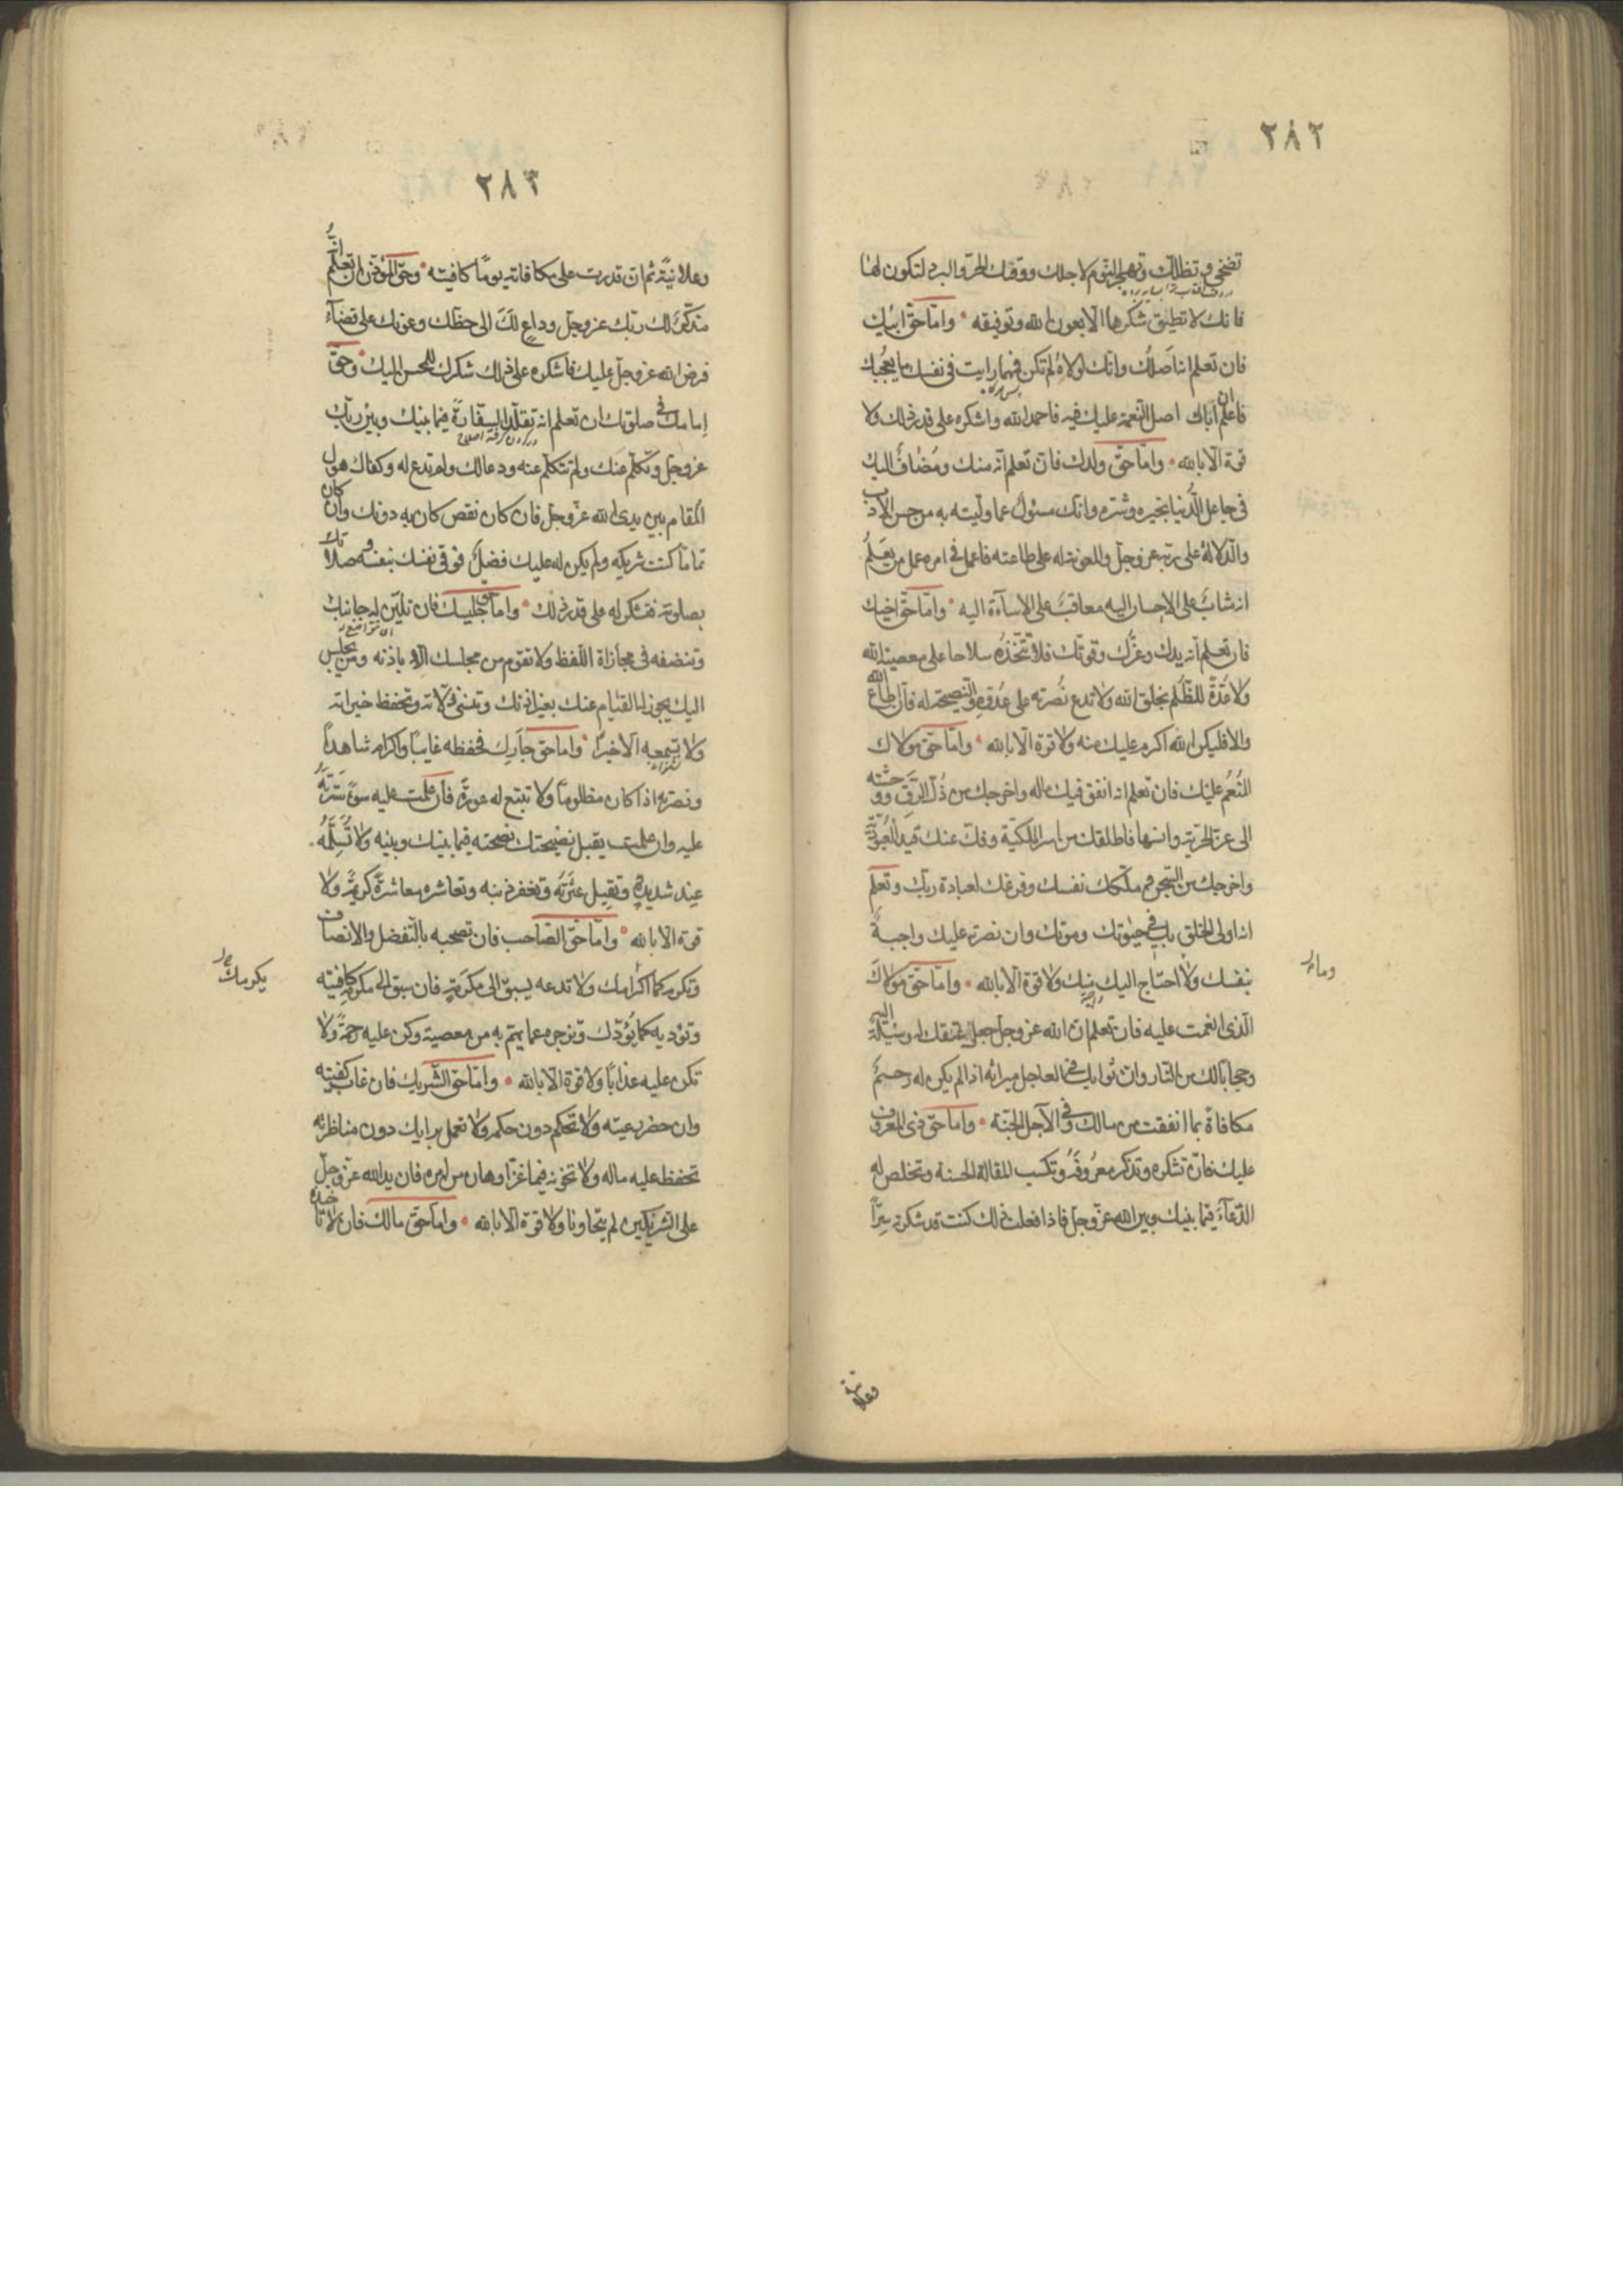 ٢٨٢
تضحى وتظلك وتهجر النوم لاجلك ووقتك الحر والبرد لتكون لها
فانك لا تطيق شكرها الا بعون الله وتوفيقه وامّا حقّ ابيك
فان تعلم انه اصلك وانك لولاه لم تكن فمهما رايت فى نفسك ما يعجبك
فاعلم ان اباك اصل النعمة عليك فيه فاحمد الله واشكره على قدر ذلك ولا
قوة الا بالله وامّا حقّ ولدك فان تعلم انه منك ومضاف اليك
فى عاجل الدنيا بخيره وشره وانك مسئول عما وليته به من حسن الادب
والدلالة على ربه عز وجل والمعونة له على طاعته فاعمل فى امره عمل من يعلم
انه مثاب على الاحسان اليه معاقب على الاساءة اليه وامّا حقّ اخيك
فان تعلم انه يدك وعزّك وقوتك فلا تتخذه سلاحا على معصية الله
ولا عدة للظلم بخلق الله ولا تدع نصرته على عدوه والنصيحة له فان اطاع الله
والا فليكن الله اكرم عليك منه ولا قوة الا بالله وامّا حقّ مولاك
المنعم عليك فان تعلم انه انفق فيك ماله واخرجك من ذل الرق ووحشته
الى عز الحرية وانسها فاطلقك من اسر الملكية وفك عنك قيد العبودية
واخرجك من السجن وملكك نفسك وفرغك لعبادة ربك وتعلم
انه اولى الخلق بك فى حيوتك وموتك وان نصرته عليك واجبة
بنفسك وما احتاج اليه منك ولا قوة الا بالله وامّا حقّ مولاك
الذى انعمت عليه فان تعلم ان الله عز وجل جعل عتقك له وسيلة اليه
وحجابا لك من النار وان ثوابك فى العاجل ميراثه اذا لم يكن له رحم
مكافاة بما انفقت من مالك وفى الآجل الجنة وامّا حقّ ذى المعروف
عليك فان تشكره وتذكر معروفه وتكسب المقالة الحسنة وتخلص له
الدعاء فيما بينك وبين الله عز وجل فاذا فعلت ذلك كنت قد شكرته سرّاً
وعلانية
٢٨٣
وعلانية ثم ان قدرت على مكافاته يوما كافيته وحقّ المؤذن ان تعلم انه
مذكر لك ربك عز وجل وداع لك الى حظك وعونك على قضاء
فرض الله عز وجل عليك فاشكره على ذلك شكرك للمحسن اليك وحقّ
امامك فى صلوتك ان تعلم انه تقلد السفارة فيما بينك وبين ربك
عز وجل وتكلم عنك ولم تتكلم عنه ودعا لك ولم تدع له وكفاك هول
المقام بين يدى الله عز وجل فان كان نقص كان به دونك وان كان
تماما كنت شريكه ولم يكن له عليك فضل فوقى نفسك بنفسه وصلاتك
بصلوته فتشكر له على قدر ذلك وامّا حقّ جليسك فان تلين له جانبك
وتنصفه فى مجازاة اللفظ ولا تقوم من مجلسك الا باذنه ومن يجلس
اليك يجوز له القيام عنك بغير اذنك وتنسى زلاته وتحفظ خيراته
ولا تسمعه الا خيرا وامّا حقّ جارك فحفظه غايبا واكرامه شاهدا
ونصرته اذا كان مظلوما ولا تتبع له عورة فان علمت عليه سوء سترته
عليه وان علمت يقبل نصيحتك نصحته فيما بينك وبينه ولا تسلمه
عند شديدة وتقيل عثرته وتغفر ذنبه وتعاشره معاشرة كريمة ولا
قوة الا بالله وامّا حقّ الصاحب فان تصحبه بالتفضل والانصاف
وتكرمه كما اكرامك ولا تدعه يسبق الى مكرمة فان سبق الى مكرمة كافيته
يكرمك
وتؤديه كما يؤدك وتزجره عما يهم به من معصية وكن عليه رحمة ولا
تكن عليه عذابا ولا قوة الا بالله وامّا حقّ الشريك فان غاب كفيته
وان حضر رعيته ولا تحكم دون حكمه ولا تعمل برايك دون مناظرته
تحفظ عليه ماله ولا تخونه فيما عزّ او هان من امره فان يد الله عز وجل
على الشريكين لم يتخاونا ولا قوة الا بالله وامّا حقّ مالك فان لا تاخذه